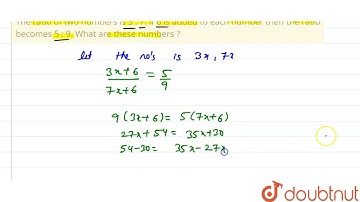 The ratio of two numbers is 3 : 7. If 6 is added to each number then the ratio
becomes 5 : 9. What are these numbers ?
let the no's is 3x, 7x
3x+6 / 7x+6 = 5/9
9(3x+6) = 5(7x+6)
27x+54 = 35x+30
54-30 = 35x-27x
doubtnut